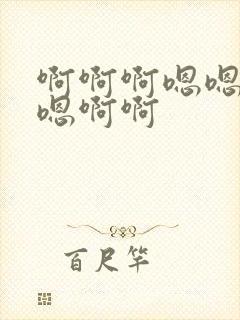 啊啊啊嗯嗯
嗯啊啊
百尺竿